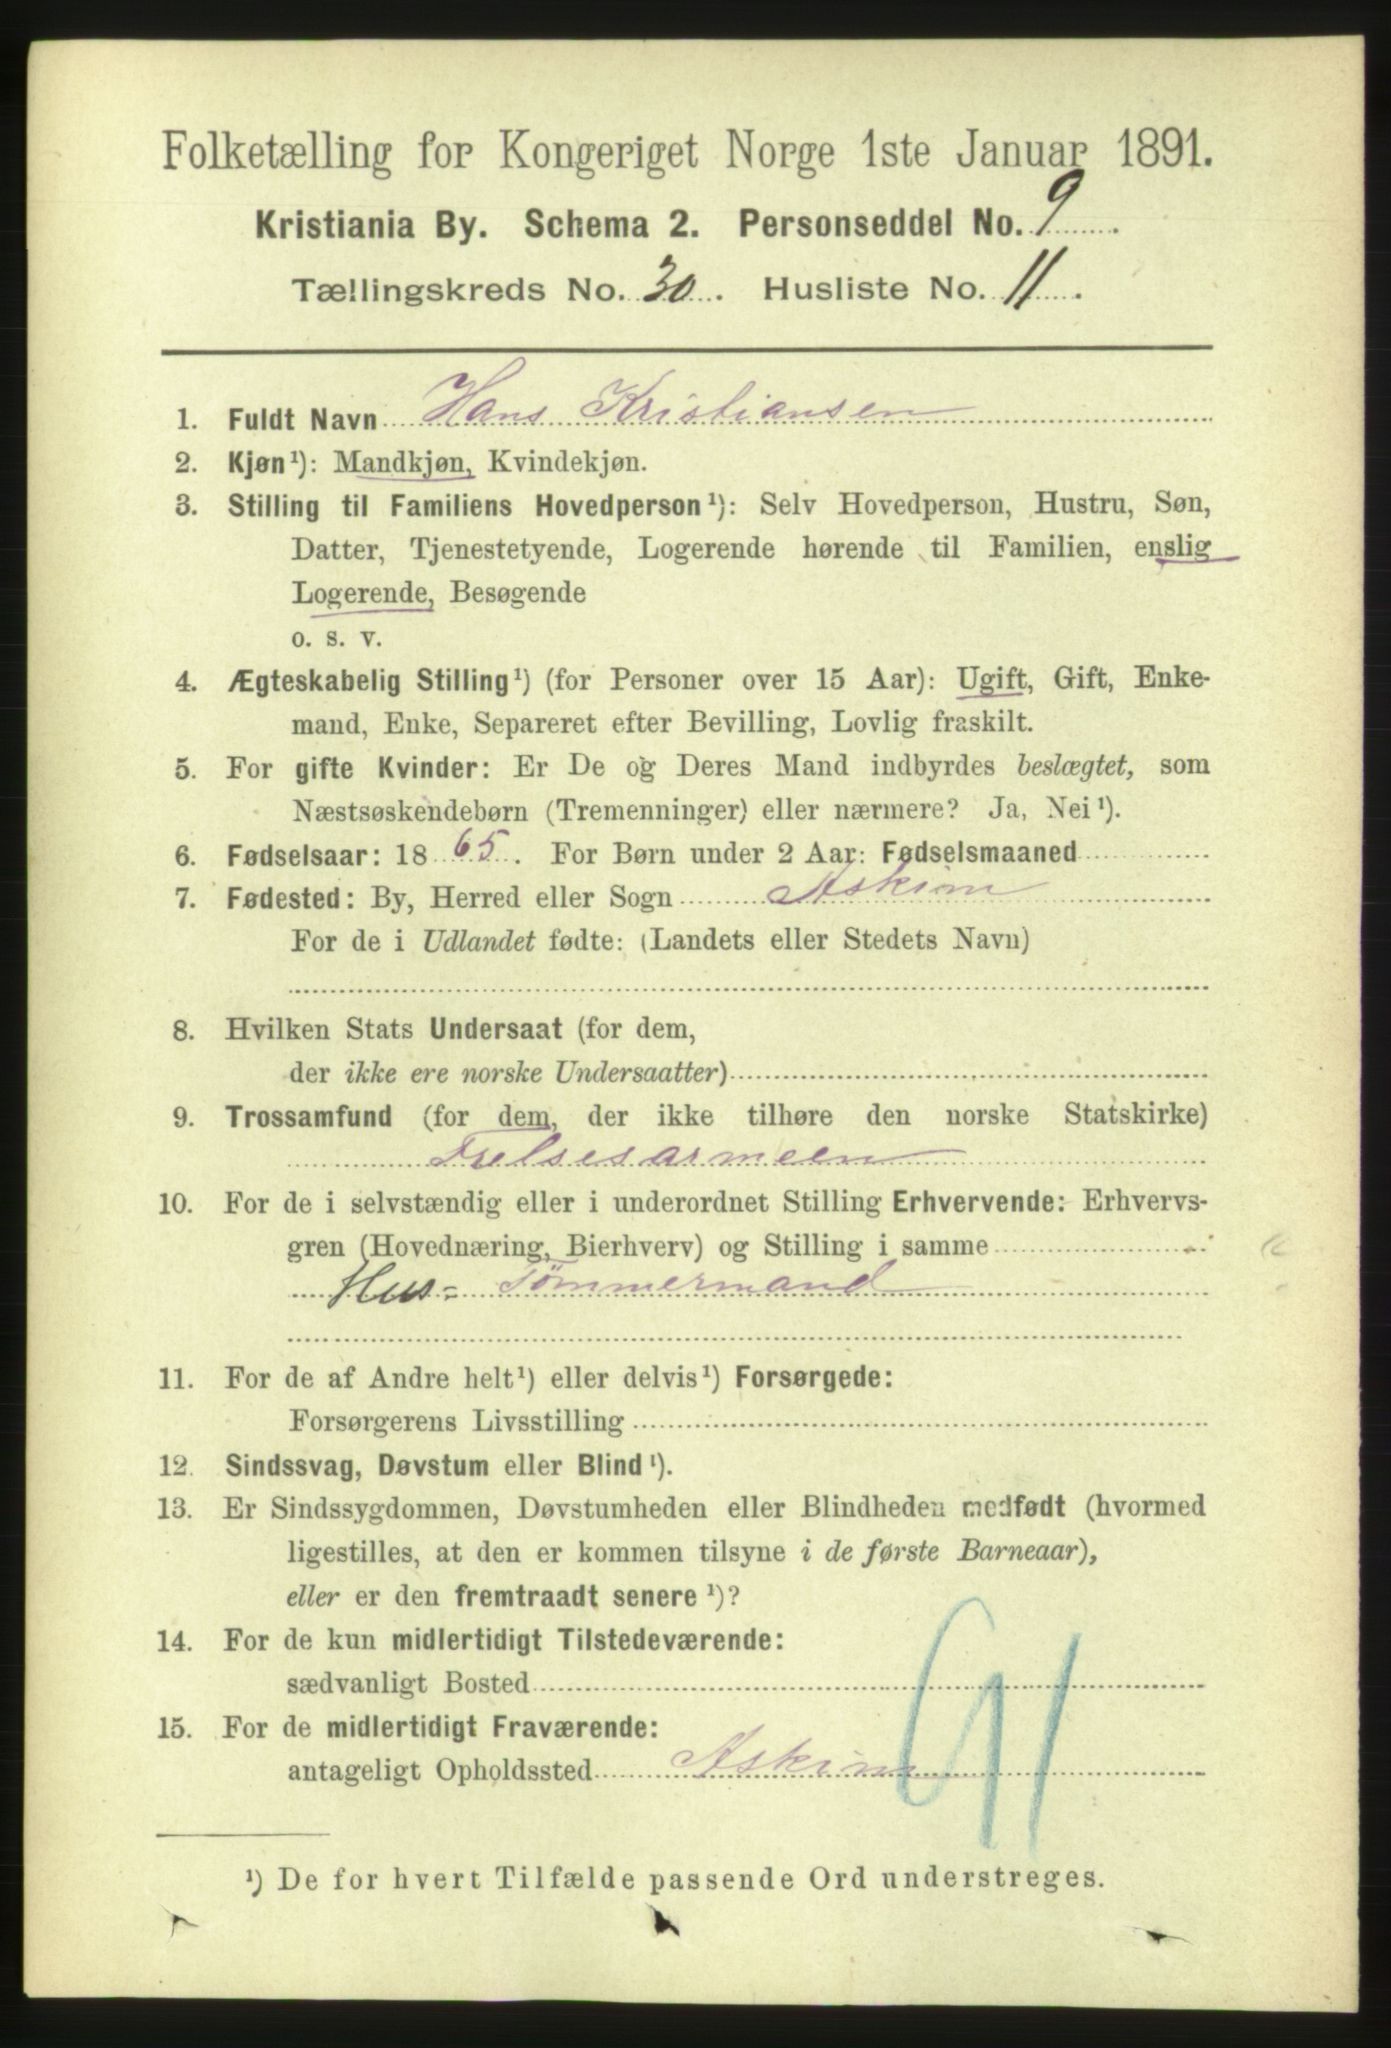 Folketælling for Kongeriget Norge 1ste Januar 1891.
Kristiania By. Schema 2. Personseddel No. 9.
Tællingskreds No. 30. Husliste No. 11.
1. Fuldt Navn Hans Kristiansen
2. Kjøn¹): Mandkjøn, Kvindekjøn.
3. Stilling til Familiens Hovedperson¹): Selv Hovedperson, Hustru, Søn,
Datter, Tjenestetyende, Logerende hørende til Familien, enslig
Logerende, Besøgende
o. s. v.
4. Ægteskabelig Stilling¹) (for Personer over 15 Aar): Ugift, Gift, Enke-
mand, Enke, Separeret efter Bevilling, Lovlig fraskilt.
5. For gifte Kvinder: Er De og Deres Mand indbyrdes beslægtet, som
Næstsøskendebørn (Tremenninger) eller nærmere? Ja, Nei¹).
6. Fødselsaar: 1865. For Børn under 2 Aar: Fødselsmaaned
7. Fødested: By, Herred eller Sogn Askim
For de i Udlandet fødte: (Landets eller Stedets Navn)
8. Hvilken Stats Undersaat (for dem,
der ikke ere norske Undersaatter)
9. Trossamfund (for dem, der ikke tilhøre den norske Statskirke)
Frelsesarmeen
10. For de i selvstændig eller i underordnet Stilling Erhvervende: Erhvervs-
gren (Hovednæring, Bierhverv) og Stilling i samme
Hus= Tömmermand
11. For de af Andre helt¹) eller delvis¹) Forsørgede:
Forsørgerens Livsstilling
12. Sindssvag, Døvstum eller Blind¹).
13. Er Sindssygdommen, Døvstumheden eller Blindheden medfødt (hvormed
ligestilles, at den er kommen tilsyne i de første Barneaar),
eller er den fremtraadt senere¹)?
14. For de kun midlertidigt Tilstedeværende:
sædvanligt Bosted
15. For de midlertidigt Fraværende:
antageligt Opholdssted Askim
91
¹) De for hvert Tilfælde passende Ord understreges.